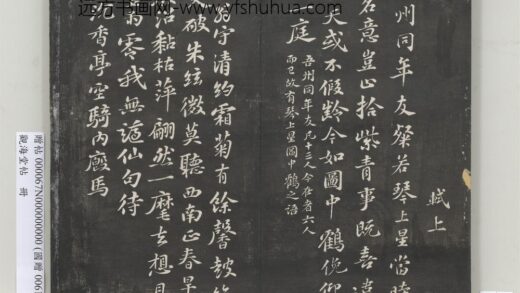 远方书画网-www.yfshuhua.com
軾上
州同年友粲若琴上星當時
名意豈止拾紫青事既喜違
天或不假齡今如圖中鶴俛仰
一庭
吾州同年友凡十三人今在者六人
而已故有琴上星圖中鶴之語
翁守清約霜菊有餘馨鼓笛
破朱絃微莫聽西南正春旱
沼黏枯萍翩然一麾去想見
雨零我無謫仙句待
香亭空騎內廄馬
贈帖 000067N000000000 (國贈 006
觀海堂帖 冊